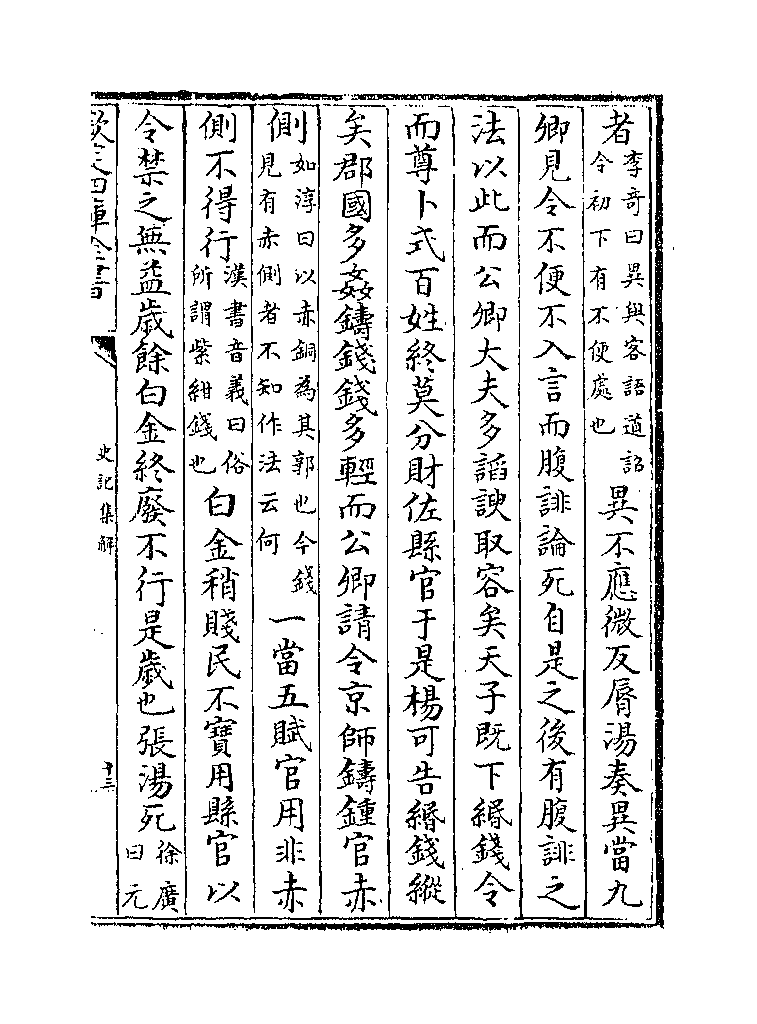 者李竒曰異與客語道詔令初下有不便處也異不應微反脣湯奏異當九
卿見令不便不入言而腹誹論死自是之後有腹誹之
法以此而公卿大夫多謟諛取容矣天子既下緡錢令
而尊卜式百姓終莫分財佐縣官于是楊可告緡錢縱
矣郡國多姦鑄錢錢多輕而公卿請令京師鑄鍾官赤
側如淳曰以赤銅為其郭也今錢見有赤側者不知作法云何一當五賦官用非赤
側不得行漢書音義曰俗所謂紫紺錢也白金稍賤民不寶用縣官以
令禁之無益歲餘白金終廢不行是歲也張湯死徐廣曰元
欽定四庫全書
史記集解
十三